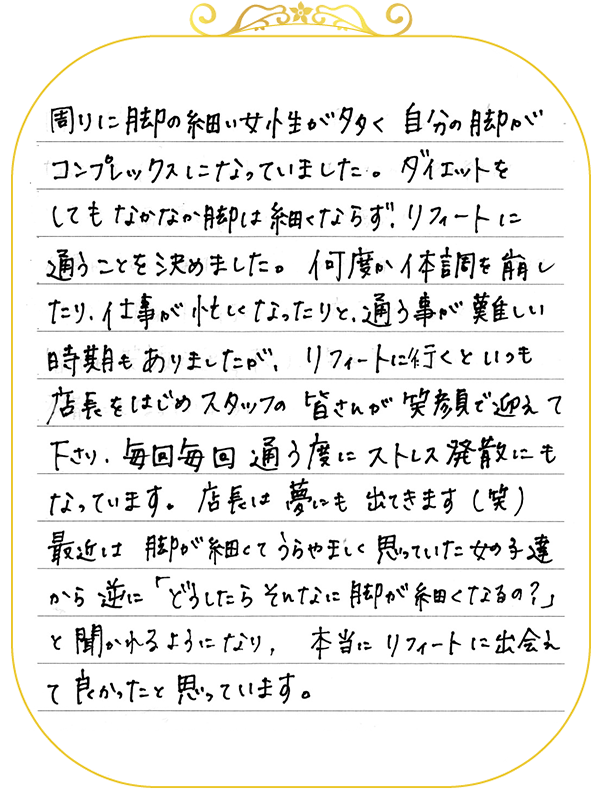 周りに脚の細い女性が多く 自分の脚が
コンプレックスになっていました。ダイエットを
してもなかなか脚は細くならず、リフィートに
通うことを決めました。何度か体調を崩し
たり、仕事が忙しくなったりと、通う事が難しい
時期もありましたが、リフィートに行くといつも
店長をはじめスタッフの皆さんが笑顔で迎えて
下さり、毎回毎回通う度にストレス発散にも
なっています。店長は夢にも出てきます(笑)
最近は 脚が細くてうらやましく思っていた女の子達
から逆に「どうしたらそんなに脚が細くなるの?」
と聞かれるようになり、本当にリフィートに出会え
て良かったと思っています。